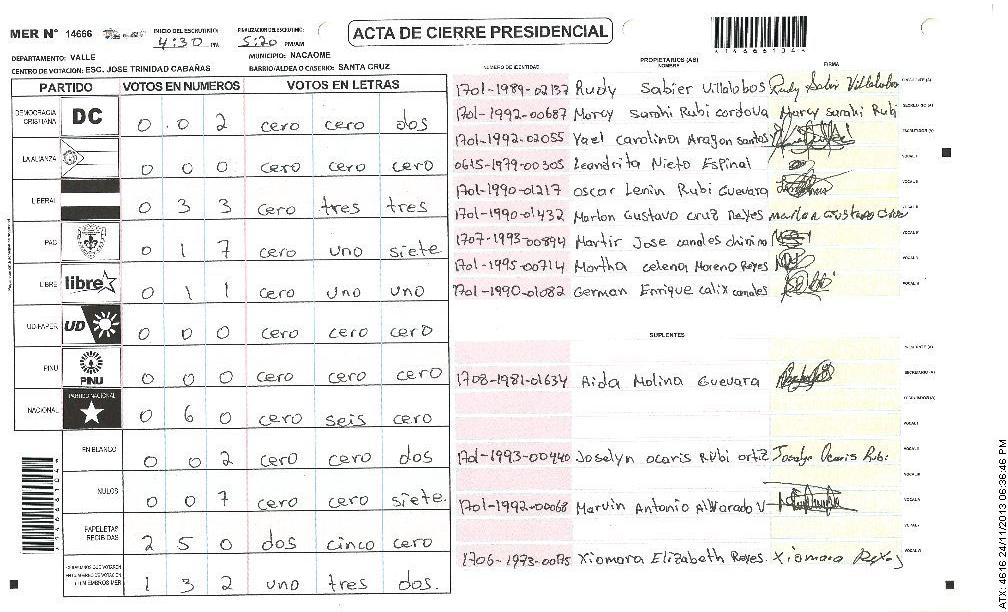 MER N° 14666 INICIO DEL ESCRUTINIO: 4:30 PM FINALIZACION DEL ESCRUTINIO: 5:20 PM/AM ACTA DE CIERRE PRESIDENCIAL
DEPARTAMENTO: VALLE MUNICIPIO: NACAOME
CENTRO DE VOTACION: ESC. JOSE TRINIDAD CABAÑAS BARRIO/ALDEA O CASERIO: SANTA CRUZ
PARTIDO VOTOS EN NUMEROS VOTOS EN LETRAS
DEMOCRACIA CRISTIANA DC 0 0 2 cero cero dos
LA ALIANZA 0 0 0 cero cero cero
LIBERAL 0 3 3 cero tres tres
PAC 0 1 7 cero uno siete
LIBRE libre 0 1 1 cero uno uno
UD/FAPER UD 0 0 0 cero cero cero
PINU PINU 0 0 0 cero cero cero
NACIONAL PARTIDO NACIONAL 0 6 0 cero seis cero
EN BLANCO 0 0 2 cero cero dos
NULOS 0 0 7 cero cero siete.
PAPELETAS RECIBIDAS 2 5 0 dos cinco cero
1 3 2 uno tres dos.
NUMERO DE IDENTIDAD PROPIETARIOS (AS) NOMBRE FIRMA
1701-1989-02137 Rudy Sabier Villalobos Rudy Sabier Villalobos
1701-1992-00687 Marcy sarahi Rubi cordova Marcy sarahi Rubi
1701-1992-02055 Yael carolina Aragon santos
0615-1979-00305 Leandrita Nieto Espinal
1701-1990-01217 oscar Lenin Rubi Guevara
1701-1990-01432 Marlon Gustavo cruz Reyes marlon Gustavo Cruz
1707-1993-00894 Martir Jose canales chirino
1701-1995-00714 Martha celena Moreno Reyes
1701-1990-01082 German Enrique calix canales
SUPLENTES
1708-1981-01634 Aida Molina Guevara
1701-1993-00440 Joselyn ocaris Rubi ortiz Joselyn Ocaris Rubi
1701-1992-00068 Marvin Antonio Alvarado V
1706-1973-0075 Xiomara Elizabeth Reyes. Xiomara Reyes
ATX: 4616 24/11/2013 06:36:46 PM